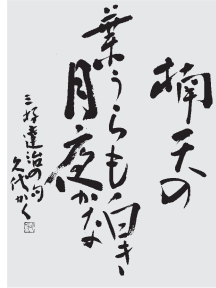 楠天の
葉うらも白き
月夜かな
三好達治の句
久代かく